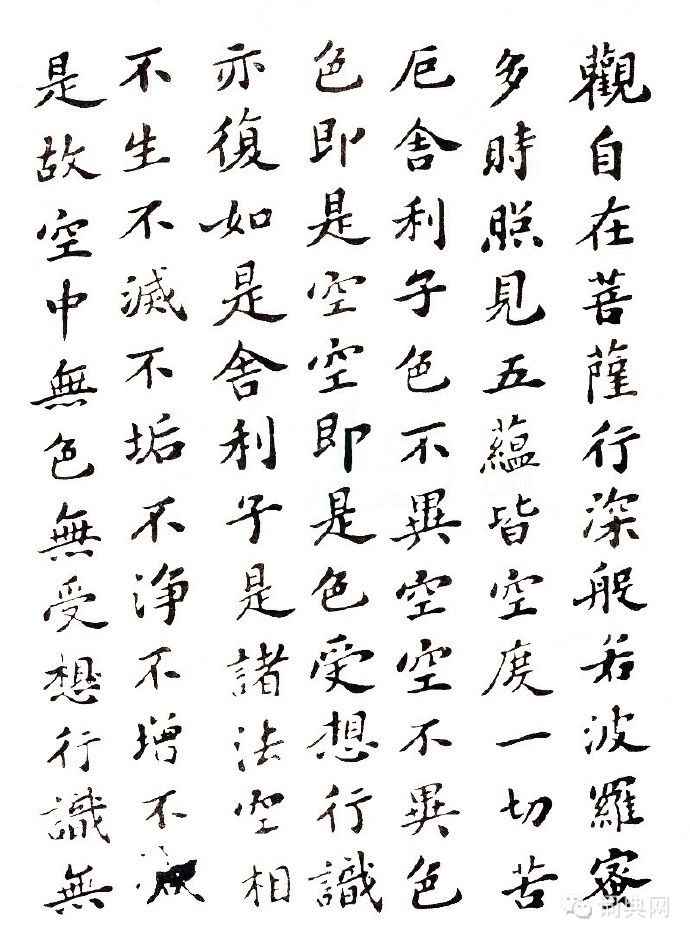 觀自在菩薩行深般若波羅蜜
多時照見五蘊皆空度一切苦
厄舍利子色不異空空不異色
色即是空空即是色受想行識
亦復如是舍利子是諸法空相
不生不滅不垢不淨不增不減
是故空中無色無受想行識無
词典网